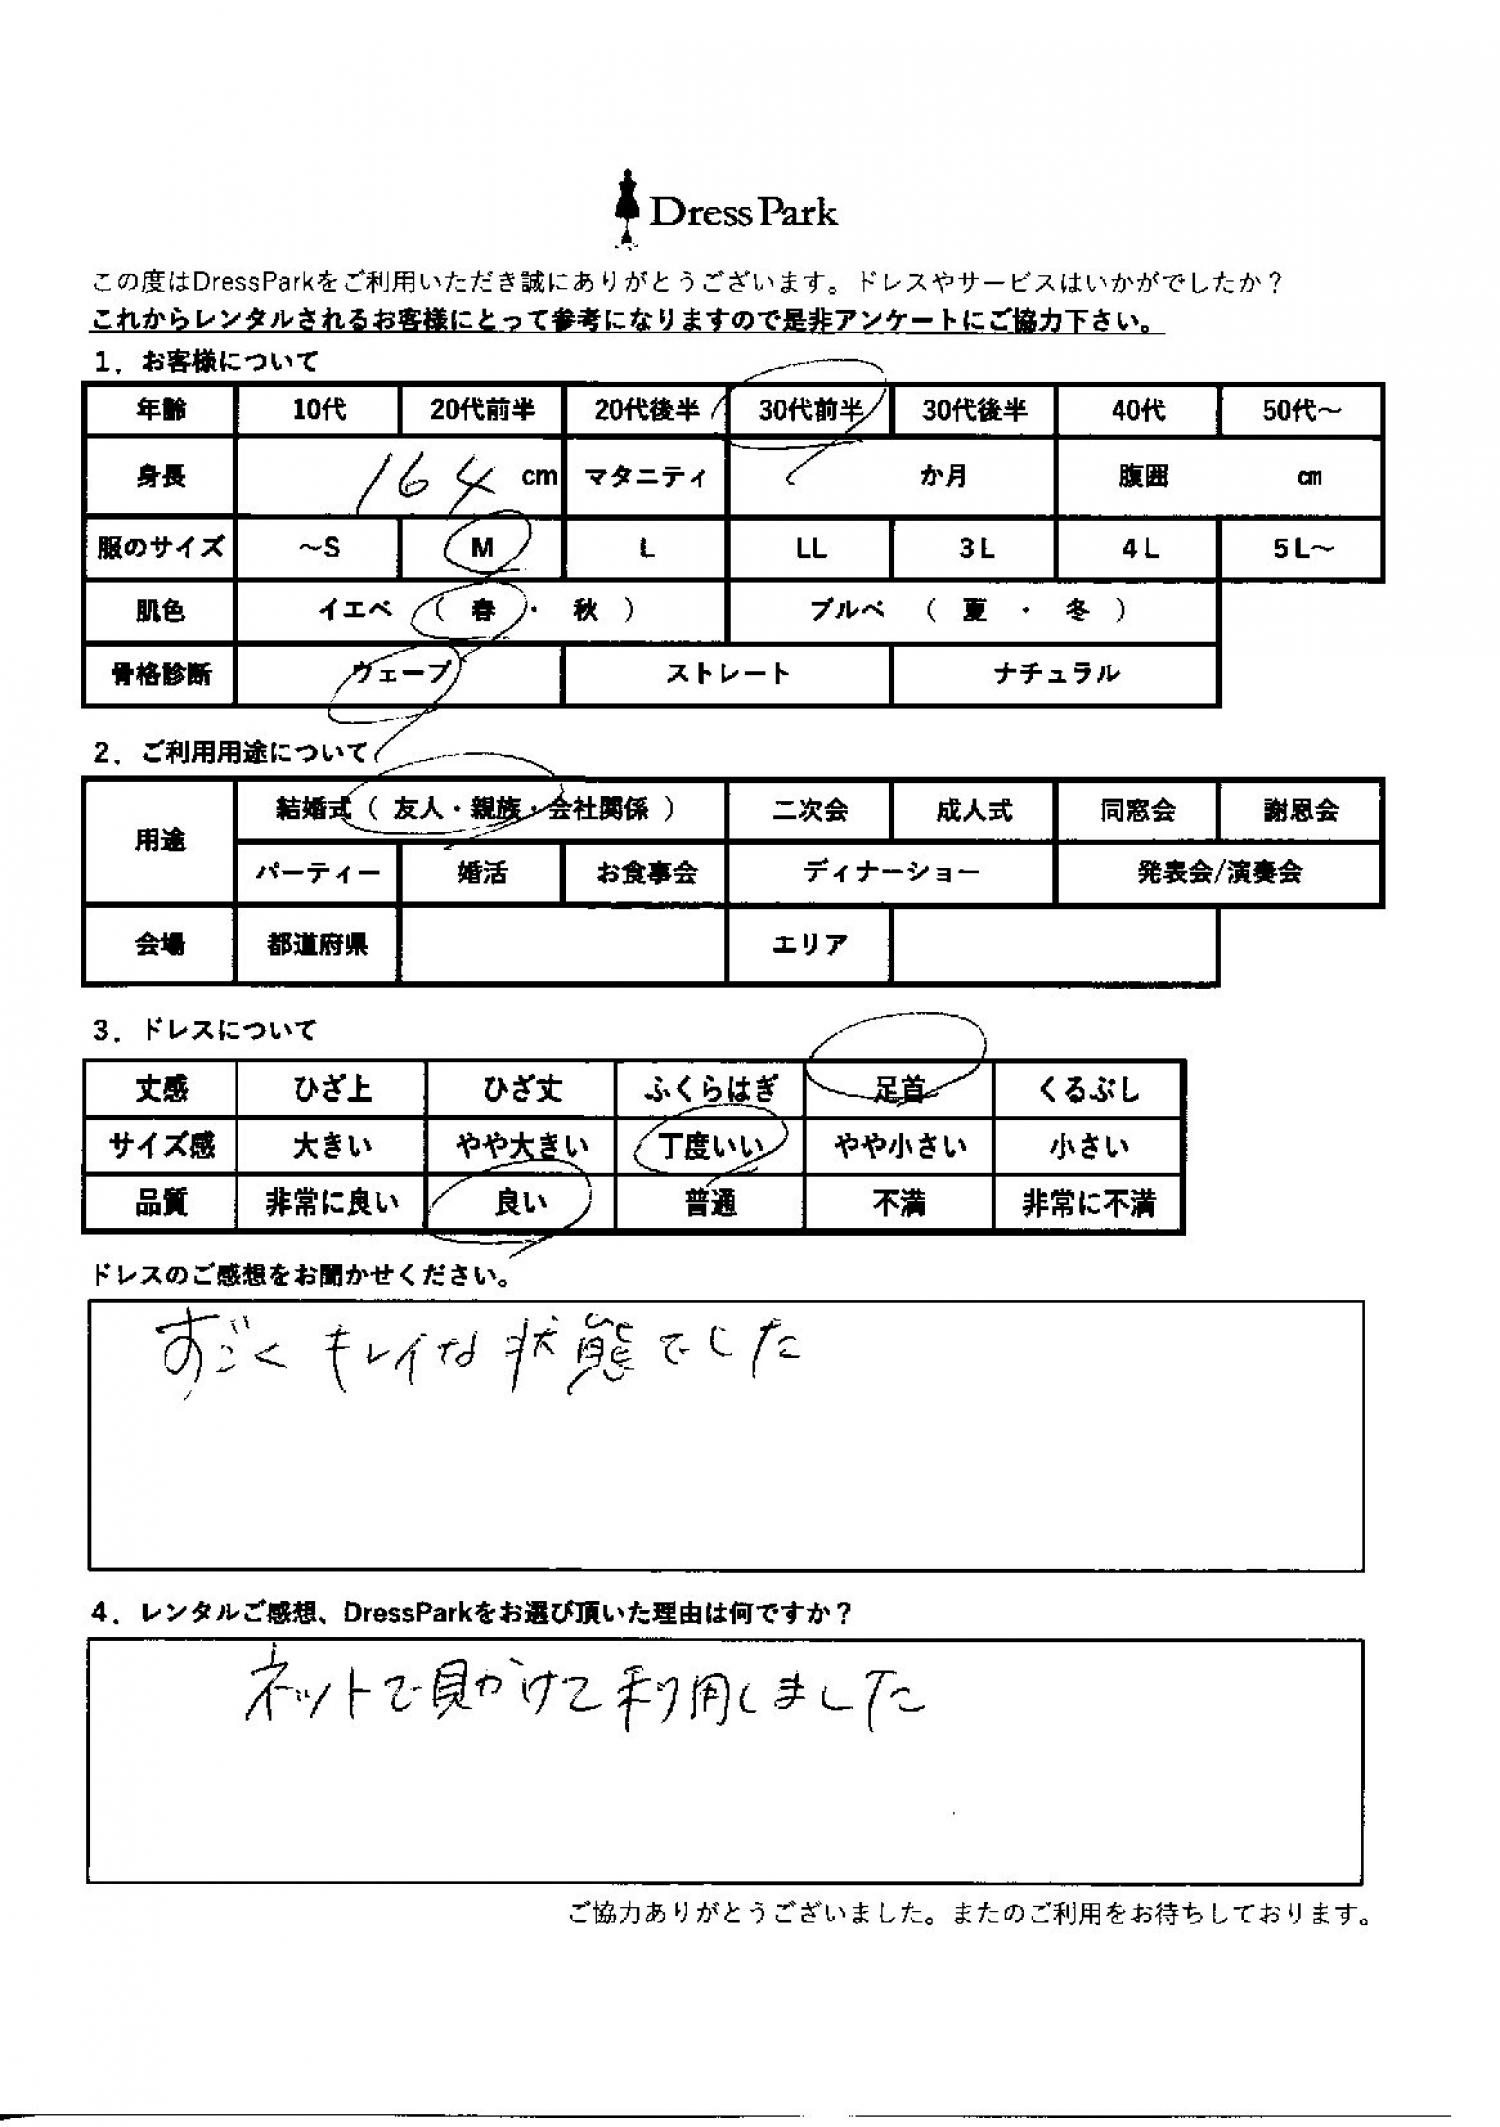 DressPark
この度はDressParkをご利用いただき誠にありがとうございます。ドレスやサービスはいかがでしたか？
これからレンタルされるお客様にとって参考になりますので是非アンケートにご協力下さい。
1．お客様について
年齢 10代 20代前半 20代後半 30代前半 30代後半 40代 50代～
身長 164 cm マタニティ か月 腹囲 ㎝
服のサイズ ～S M L LL 3L 4L 5L～
肌色 イエベ （ 春 ・ 秋 ） ブルベ （ 夏 ・ 冬 ）
骨格診断 ウェーブ ストレート ナチュラル
2．ご利用用途について
用途 結婚式（ 友人・親族・会社関係 ） 二次会 成人式 同窓会 謝恩会
パーティー 婚活 お食事会 ディナーショー 発表会/演奏会
会場 都道府県 エリア
3．ドレスについて
丈感 ひざ上 ひざ丈 ふくらはぎ 足首 くるぶし
サイズ感 大きい やや大きい 丁度いい やや小さい 小さい
品質 非常に良い 良い 普通 不満 非常に不満
ドレスのご感想をお聞かせください。
すごくキレイな状態でした
4．レンタルご感想、DressParkをお選び頂いた理由は何ですか？
ネットで見かけて利用しました
ご協力ありがとうございました。またのご利用をお待ちしております。